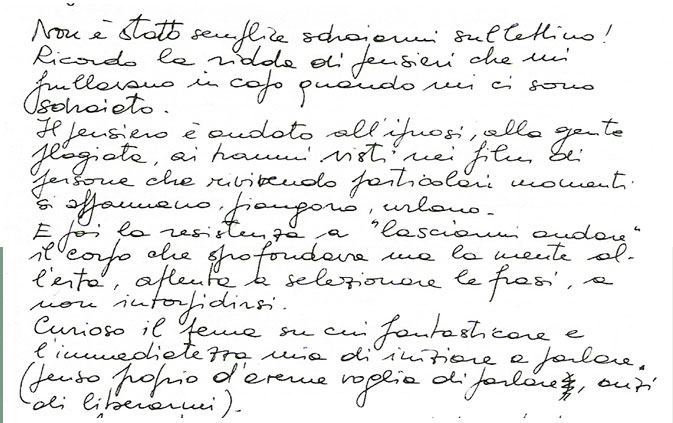 Non è stato semplice sdraiarmi sul lettino!
Ricordo la ridda di pensieri che mi
frullavano in capo quando mi ci sono
sdraiato.
Il pensiero è andato all'ipnosi, alla gente
plagiata, ai traumi visti nei film di
persone che rivivendo particolari momenti
si affannano, piangono, urlano.
E poi la resistenza a "lasciarmi andare"
il corpo che sprofondava ma la mente al-
l'erta, attenta a selezionare le frasi, a
non intorpidirsi.
Curioso il tema su cui fantasticare e
l'immediatezza mia di iniziare a parlare.
(penso proprio d'averne voglia di parlare, anzi
di liberarmi).